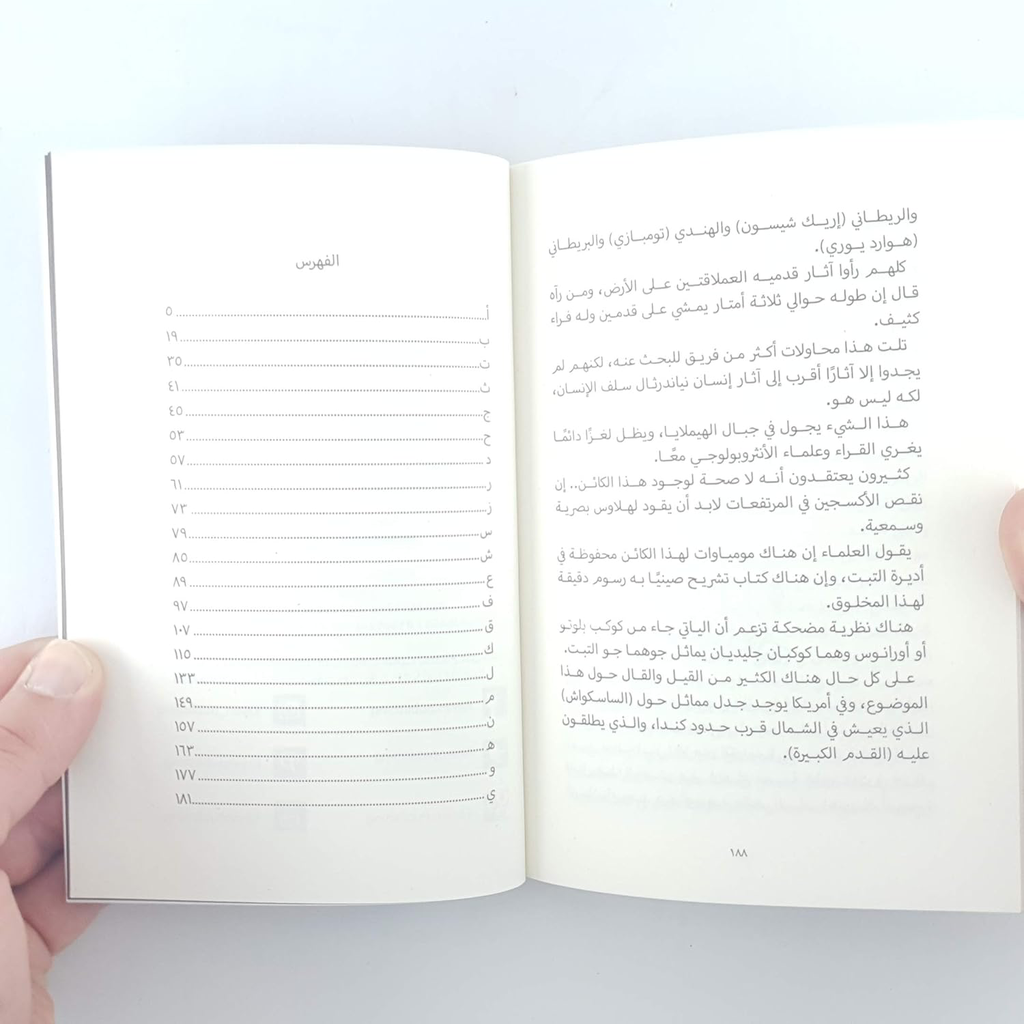 والريطاني (إريك شيسون) والهندي (تومبازي) والبريطاني
(هوارد يوري).
كلهم رأوا آثار قدميه العملاقتين على الأرض، ومن رآه
قال إن طوله حوالي ثلاثة أمتار يمشي على قدمين وله فراء
كثيف.
تلت هذا محاولات أكثر من فريق للبحث عنه، لكنهم لم
يجدوا إلا آثارًا أقرب إلى آثار إنسان نياندرثال سلف الإنسان،
لكنه ليس هو.
هذا الشيء يجول في جبال الهيملايا، ويظل لغزًا دائمًا
يغري القراء وعلماء الأنثروبولوجي معًا.
كثيرون يعتقدون أنه لا صحة لوجود هذا الكائن.. إن
نقص الأكسجين في المرتفعات لابد أن يقود لهلاوس بصرية
وسمعية.
يقول العلماء إن هناك مومياوات لهذا الكائن محفوظة في
أديرة التبت، وإن هناك كتاب تشريح صينيًا به رسوم دقيقة
لهذا المخلوق.
هناك نظرية مضحكة تزعم أن الياتي جاء من كوكب بلوتو
أو أورانوس وهما كوكبان جليديان يماثل جوهما جو التبت.
على كل حال هناك الكثير من القيل والقال حول هذا
الموضوع، وفي أمريكا يوجد جدل مماثل حول (الساسكواش)
الذي يعيش في الشمال قرب حدود كندا، والذي يطلقون
عليه (القدم الكبيرة).
١٨٨
الفهرس
أ ٥
ب ١٩
ت ٣٥
ث ٤١
ج ٤٥
ح ٥٣
د ٥٧
ر ٦١
ز ٧٣
س ٧٩
ش ٨٥
ع ٨٩
ف ٩٧
ق ١٠٧
ك ١١٥
ل ١٣٣
م ١٤٩
ن ١٥٧
ه ١٦٣
و ١٧٧
ي ١٨١